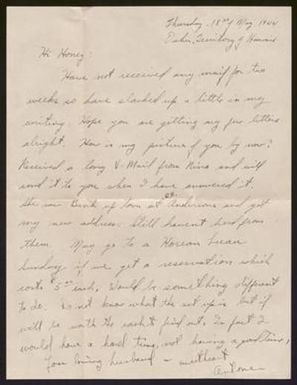 Thursday, 18th May, 1944
Oahu, Territory of Hawaii
Hi Honey:
Have not received any mail for two
weeks so have slacked up a little in my
writing. Hope you are getting my few letters
alright. How is my picture of you by now?
Received a long V-Mail from Nina and will
send it to you when I have answered it.
She was up town at Andersons and got
my new address. Still havent heard from
them. May go to a
Sunday if we get a reservation which
costs $5 each. Would be something different
to do. Do not know what the set up is but it
will be worth the cash to find out. In fact I
would have a hard time, not having a good time,
Your loving husband — sweetheart